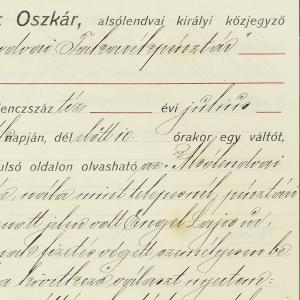 Oszkár, alsólendvai királyi közjegyző
Takarékpénztár"
lenczszáz tíz évi július
napján, dél előtt 10 órakor egy váltót,
ulsó oldalon olvasható az Alsólendvai
nála mint telepesnél, pénztán
ott jelen volt Engel Lajos úr,
nak fizetés végett személyesen be
a következő választ nyertem: